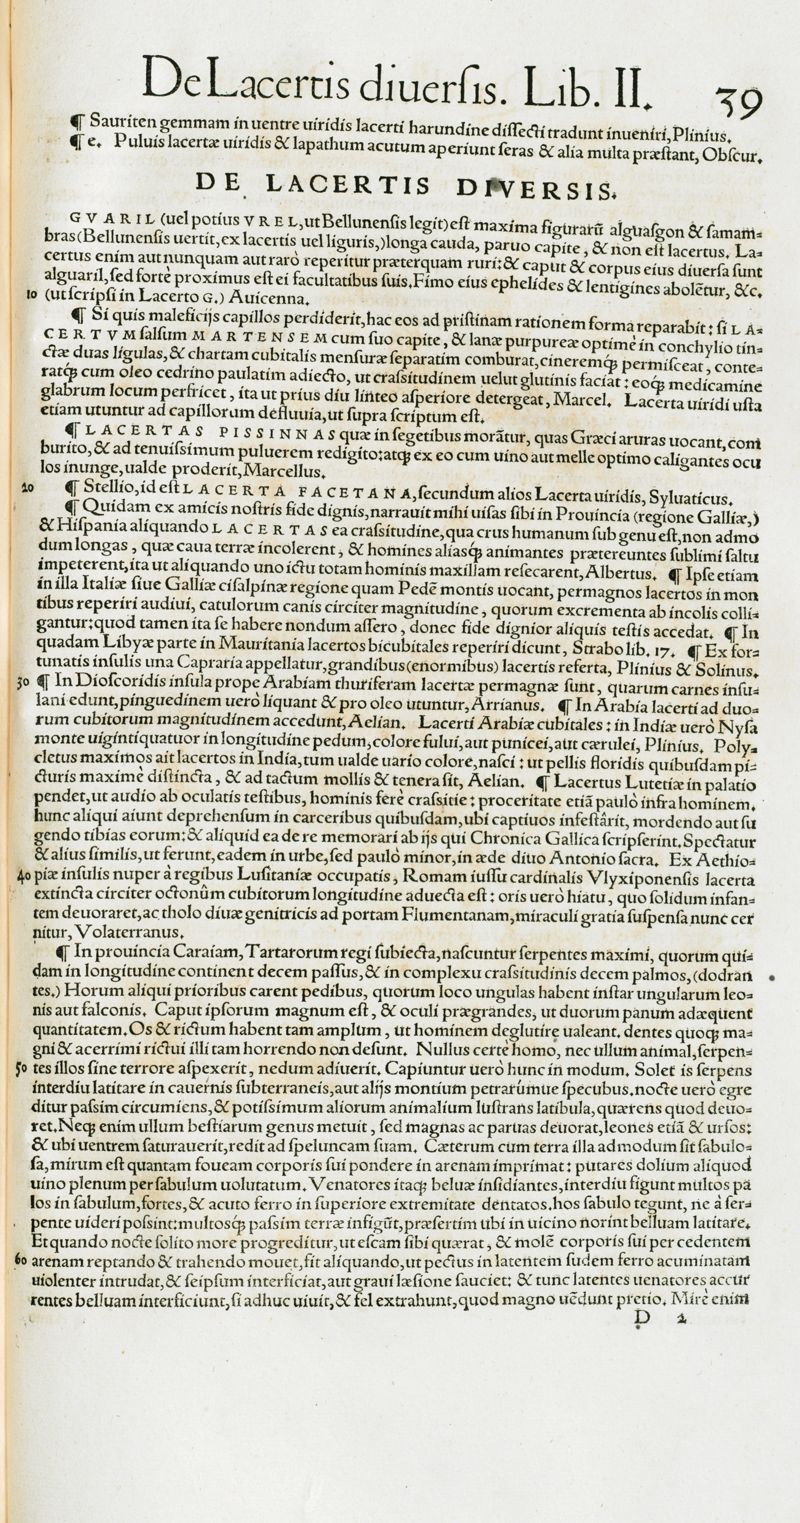 De Lacertis diuersis. Lib. II. 39
¶ Sauriten gemmam in uentre uiridis lacerti harundine dissecti tradunt inueniri, Plinius.
¶ e. Puluis lacertæ uiridis & lapathum acutum aperiunt seras & alia multa præstant, Obscur.
DE LACERTIS DIVERSIS.
GVARIL (uel potius VREL, ut Bellunensis legit) est maxima figurarũ alguasgon & samam=
bras (Bellunensis uertit, ex lacertis uel liguris,) longa cauda, paruo capite, & non est lacertus. La=
certus enim aut nunquam aut raro reperitur præterquam ruri: & caput & corpus eius diuersa sunt
alguaril, sed forte proximus est ei facultatibus suis. Fimo eius ephelides & lentigines abolẽtur, &c.
10 (ut scripsi in Lacerto G.) Auicenna.
¶ Si quis maleficijs capillos perdiderit, hac eos ad pristinam rationem forma reparabit: si LA=
CERTVM salsum MARTENSEM cum suo capite, & lanæ purpureæ optimè in conchylio tin=
ctæ duas ligulas, & chartam cubitalis mensuræ separatim comburat, cineremq́; permisceat, conte=
ratq́; cum oleo cedrino paulatim adiecto, ut crassitudinem uelut glutinis faciat: eoq́; medicamine
glabrum locum perfricet, ita ut prius diu linteo asperiore detergeat, Marcel. Lacerta uiridi usta
etiam utuntur ad capillorum defluuia, ut supra scriptum est.
¶ LACERTAS PISSINNAS quæ in segetibus morãtur, quas Græci aruras uocant, com
burito, & ad tenuissimum puluerem redigito: atq́; ex eo cum uino aut melle optimo caligantes ocu
los inunge, ualde proderit, Marcellus.
20 ¶ Stellio, id est LACERTA FACETANA, secundum alios Lacerta uiridis, Syluaticus.
¶ Quidam ex amicis nostris fide dignis, narrauit mihi uisas sibi in Prouincia (regione Galliæ,)
& Hispania aliquando LACERTAS ea crassitudine, qua crus humanum sub genu est, non admo
dum longas, quæ caua terræ incolerent, & homines aliasq́; animantes prætereuntes sublimi saltu
impeterent, ita ut aliquando uno ictu totam hominis maxillam resecarent, Albertus. ¶ Ipse etiam
in illa Italiæ siue Galliæ cisalpinæ regione quam Pedẽ montis uocant, permagnos lacertos in mon
tibus reperiri audiui, catulorum canis circiter magnitudine, quorum excrementa ab incolis colli=
gantur: quod tamen ita se habere nondum assero, donec fide dignior aliquis testis accedat. ¶ In
quadam Libyæ parte in Mauritania lacertos bicubitales reperiri dicunt, Strabo lib. 17. ¶ Ex for=
tunatis insulis una Capraria appellatur, grandibus (enormibus) lacertis referta, Plinius & Solinus.
30 ¶ In Dioscoridis insula prope Arabiam thuriferam lacertæ permagnæ sunt, quarum carnes insu=
lani edunt, pinguedinem uerò liquant & pro oleo utuntur, Arrianus. ¶ In Arabia lacerti ad duo=
rum cubitorum magnitudinem accedunt, Aelian. Lacerti Arabiæ cubitales: in Indiæ uerò Nysa
monte uigintiquatuor in longitudine pedum, colore fului, aut punicei, aut cærulei, Plinius. Poly=
cletus maximos ait lacertos in India, tum ualde uario colore, nasci: ut pellis floridis quibusdam pi=
cturis maximè distincta, & ad tactum mollis & tenera sit, Aelian. ¶ Lacertus Lutetiæ in palatio
pendet, ut audio ab oculatis testibus, hominis ferè crassitie: proceritate etiã paulò infra hominem.
hunc aliqui aiunt deprehensum in carceribus quibusdam, ubi captiuos infestârit, mordendo aut su
gendo tibias eorum: & aliquid ea de re memorari ab ijs qui Chronica Gallica scripserint. Spectatur
& alius similis, ut ferunt, eadem in urbe, sed paulò minor, in æde diuo Antonio sacra. Ex Aethio=
40 piæ insulis nuper à regibus Lusitaniæ occupatis, Romam iussu cardinalis Vlyxiponensis lacerta
extincta circiter octonûm cubitorum longitudine aduecta est: oris uerò hiatu, quo solidum infan=
tem deuoraret, ac tholo diuæ genitricis ad portam Flumentanam, miraculi gratia suspensa nunc cer
nitur, Volaterranus.
¶ In prouincia Caraiam, Tartarorum regi subiecta, nascuntur serpentes maximi, quorum qui=
dam in longitudine continent decem passus, & in complexu crassitudinis decem palmos, (dodran
tes.) Horum aliqui prioribus carent pedibus, quorum loco ungulas habent instar ungularum leo=
nis aut falconis. Caput ipsorum magnum est, & oculi prægrandes, ut duorum panum adæquent
quantitatem. Os & rictum habent tam amplum, ut hominem deglutire ualeant. dentes quoq́; ma=
gni & acerrimi rictui illi tam horrendo non desunt. Nullus certè homo, nec ullum animal, serpen=
50 tes illos sine terrore aspexerit, nedum adiuerit. Capiuntur uerò hunc in modum. Solet is serpens
interdiu latitare in cauernis subterraneis, aut alijs montium petrarúmue specubus. nocte uerò egre
ditur passim circumiens, & potissimum aliorum animalium lustrans latibula, quærens quod deuo=
ret. Neq́; enim ullum bestiarum genus metuit, sed magnas ac paruas deuorat, leones etiã & ursos:
& ubi uentrem saturauerit, redit ad speluncam suam. Cæterum cum terra illa admodum sit sabulo=
sa, mirum est quantam foueam corporis sui pondere in arenam imprimat: putares dolium aliquod
uino plenum per sabulum uolutatum. Venatores itaq́; beluæ insidiantes, interdiu figunt multos pa
los in sabulum, fortes, & acuto ferro in superiore extremitate dentatos. hos sabulo tegunt, ne à ser=
pente uideri possint: multosq́; passim terræ infigũt, præsertim ubi in uicino norint belluam latitare.
Et quando nocte solito more progreditur, ut escam sibi quærat, & molẽ corporis sui per cedentem
60 arenam reptando & trahendo mouet, fit aliquando, ut pectus in latentem sudem ferro acuminatam
uiolenter intrudat, & seipsum interficiat, aut graui læsione sauciet: & tunc latentes uenatores accur
rentes belluam interficiunt, si adhuc uiuit, & fel extrahunt, quod magno uẽdunt pretio. Mirè enim
D 2